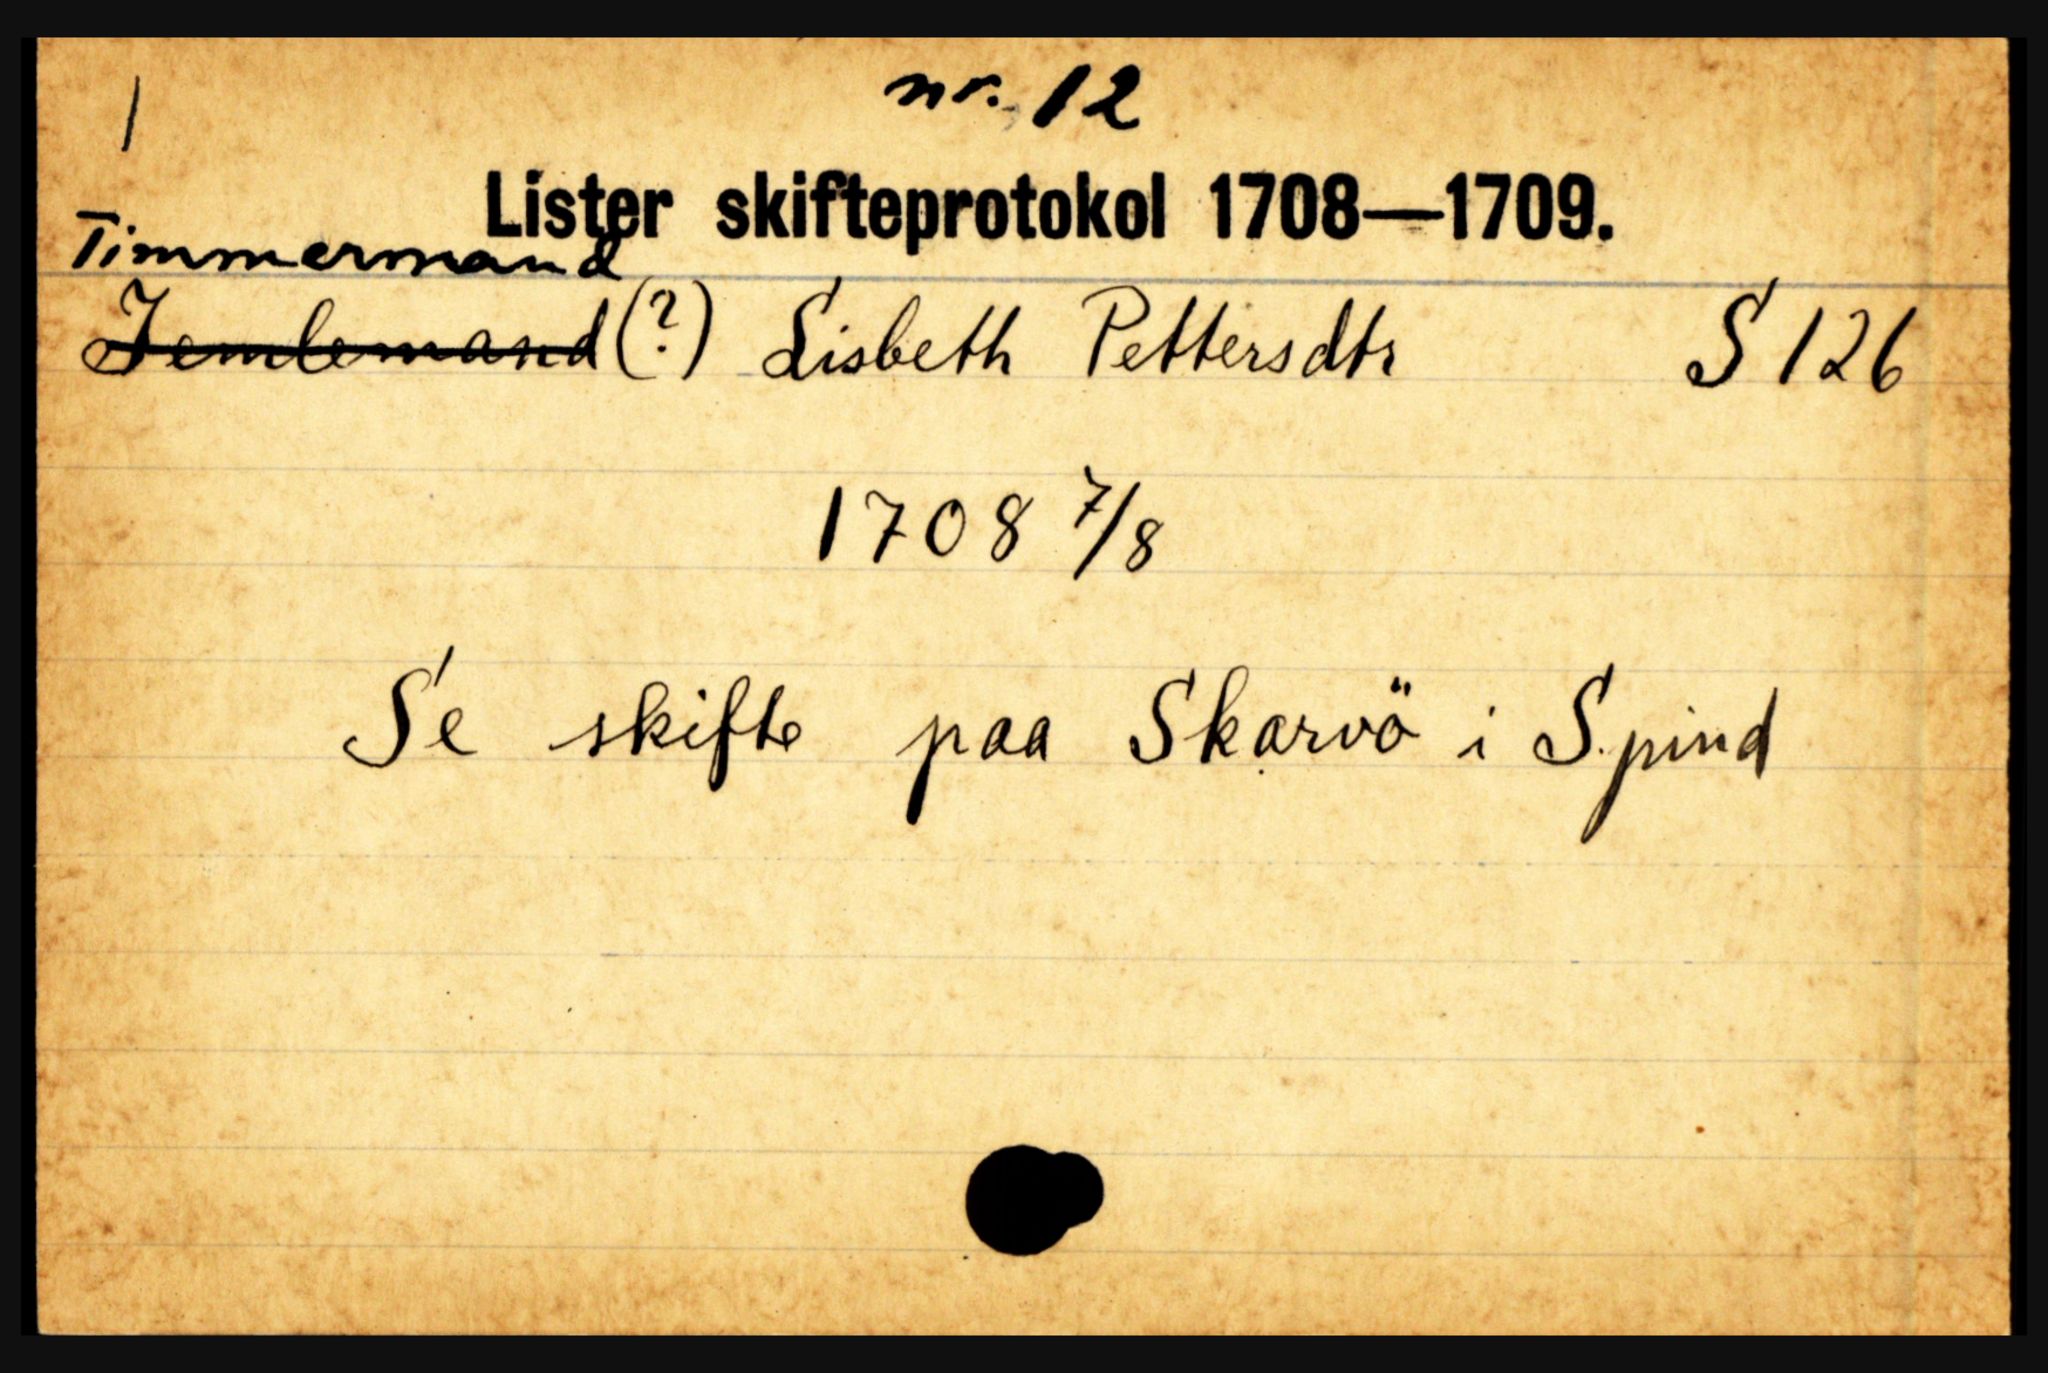 nr. 12
Lister skifteprotokol 1708—1709.
Timmermand
Jemlemand (?) Lisbeth Pettersdtr S 126
1708 7/8
Se skifte paa Skarvö i Spind